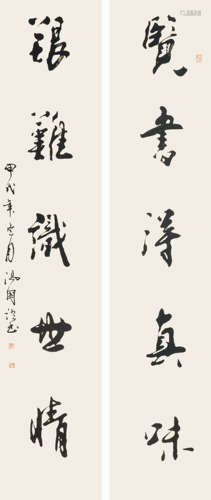 覽書得真味
艱難識世情
甲戌年